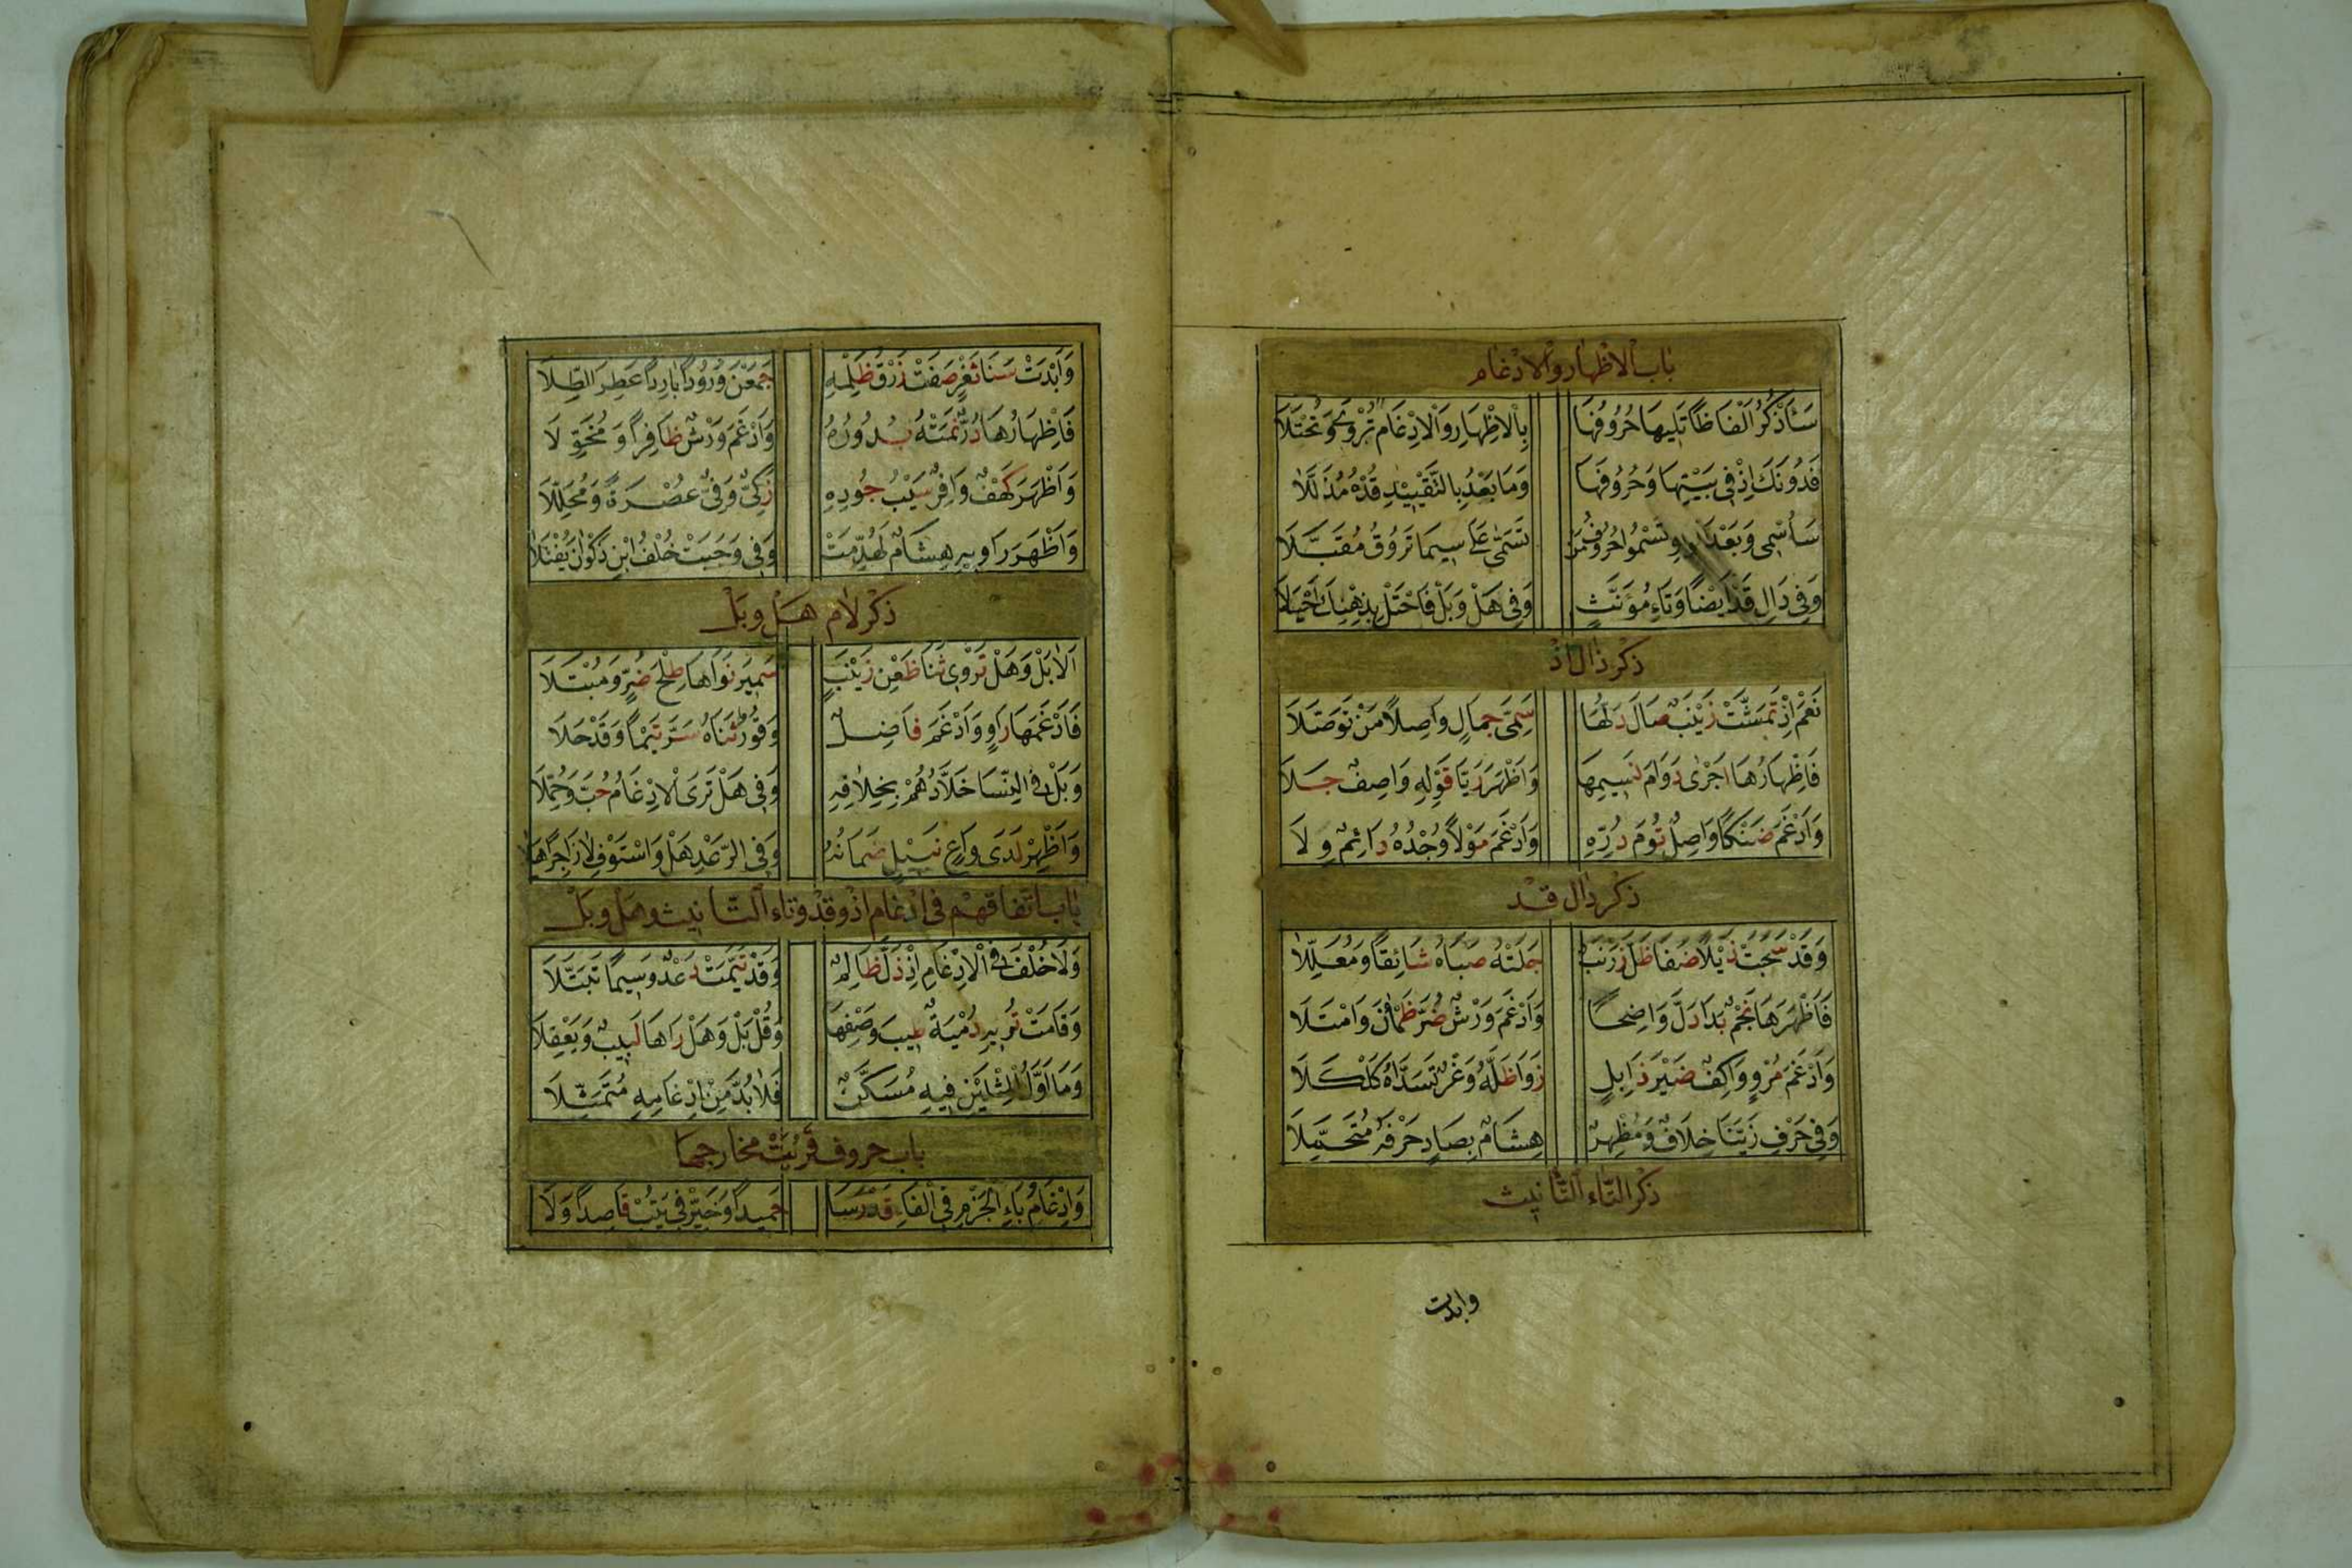 باب الاظهار والادغام
سَأَذْكُرُ اَلْفَاظًا تَلِيهَا حُرُوفُهَا بِالْاِظْهَارِ وَالْاِدْغَامِ تُرْوٰى وَتُجْتَلَا
فَدُونَكَ اِذْ فِي بَيْتِهَا وَحُرُوفَهَا وَمَا بَعْدُ بِالتَّقْيِيْدِ قُدْهُ مُذَلَّلَا
سَأُسْمِي وَبَعْدَ الْوَاوِ تَسْمُوا حُرُوفُ مَنْ تَسَمّٰى عَلٰى سِيمَا تَرُوقُ مُقَبَّلَا
وَفِي دَالِ قَدْ اَيْضًا وَتَاءِ مُؤَنَّثٍ وَفِي هَلْ وَبَلْ فَاحْتَلْ بِذِهْنِكَ اَحْيَلَا
ذكر ذال اذ
نَعَمْ اِذْ تَمَشَّتْ زَيْنَبٌ صَالَ دَلُّهَا سَمِيَّ جَمَالٍ وَاصِلًا مَنْ تَوَصَّلَا
فَاِظْهَارُهَا اَجْرٰى دَوَامَ نَسِيمِهَا وَاَظْهَرَ رَيَّا قَوْلِهِ وَاصِفٌ جَلَا
وَاَدْغَمَ ضَنْكًا وَاصِلٌ تُومَ دُرِّهِ وَاَدْغَمَ مَوْلًا وُجْدُهُ دَائِمٌ وِلَا
ذكر دال قد
وَقَدْ سَحَبَتْ ذَيْلًا ضَفَا ظَلَّ زَرْنَبٌ جَلَتْهُ صَبَاهُ شَائِقًا وَمُعَلِّلَا
فَاَظْهَرَهَا نَجْمٌ بَدَا دَلَّ وَاضِحًا وَاَدْغَمَ وَرْشٌ ضُرَّ ظَمْاٰنَ وَامْتَلَا
وَاَدْغَمَ مُرْوٍ وَاكِفٌ ضَيْرَ ذَابِلٍ زَوَا ظِلَّهُ وَغْرٌ تَسَدَّاهُ كَلْكَلَا
وَفِي حَرْفِ زَيَّنَا خِلَافٌ وَمُظْهِرٌ هِشَامٌ بِصَادٍ حَرْفَهُ مُتَحَمِّلَا
ذكر التاء التأنيث
وابدت
وَاَبْدَتْ سَنَا ثَغْرٍ صَفَتْ زُرْقُ ظَلْمِهِ جَمَعْنَ وُرُودًا بَارِدًا عَطِرَ الطِّلَا
فَاِظْهَارُهَا دُرٌّ نَمَتْهُ بُدُورُهُ وَاَدْغَمَ وَرْشٌ ظَافِرًا وَمُخَوِّلَا
وَاَظْهَرَ كَهْفٌ وَافِرٌ سَيْبُ جُودِهِ زَكِيٌّ وَفِيٌّ عُصْرَةً وَمُحَلِّلَا
وَاَظْهَرَ رَاوِيهِ هِشَامٌ لَهُدِّمَتْ وَفِي وَجَبَتْ خُلْفُ ابْنِ ذَكْوَانَ يُفْتَلَا
ذكر لام هل وبل
اَلَا بَلْ وَهَلْ تَرْوِي ثَنَا ظَعْنِ زَيْنَبٍ سَمِيرَ نَوَاهَا طِلْحَ ضُرٍّ وَمُبْتَلَا
فَاَدْغَمَهَا رَاوٍ وَاَدْغَمَ فَاضِلٌ وَقُورٌ ثَنَاهُ سَرَّ تَيْمًا وَقَدْ حَلَا
وَبَلْ فِي النِّسَا خَلَّادُهُمْ بِخِلَافِهِ وَفِي هَلْ تَرَى الْاِدْغَامُ حُبَّ وَحُمِّلَا
وَاَظْهِرْ لَدَى وَاعٍ نَبِيْلٍ ضَمَانُهُ وَفِي الرَّعْدِ هَلْ وَاسْتَوْفِ لَا زَاجِرًا هَلَا
باب اتفاقهم في ادغام اذ وقد وتاء التانيث وهل وبل
وَلَا خُلْفَ فِي الْاِدْغَامِ اِذْ ذَلَّ ظَالِمٌ وَقَدْ تَيَّمَتْ دَعْدٌ وَسِيمًا تَبَتَّلَا
وَقَامَتْ تُرِيهِ دُمْيَةٌ طِيبَ وَصْفِهَا وَقُلْ بَلْ وَهَلْ رَاهَا لَبِيبٌ وَيَعْقِلَا
وَمَا اَوَّلُ الْمِثْلَيْنِ فِيهِ مُسَكَّنٌ فَلَا بُدَّ مِنْ اِدْغَامِهِ مُتَمَثِّلَا
باب حروف قربت مخارجها
وَاِدْغَامُ بَاءِ الْجَزْمِ فِي الْفَاءِ قَدْ رَسَا حَمِيدًا وَخَيِّرْ فِي يَتُبْ قَاصِدًا وَلَا